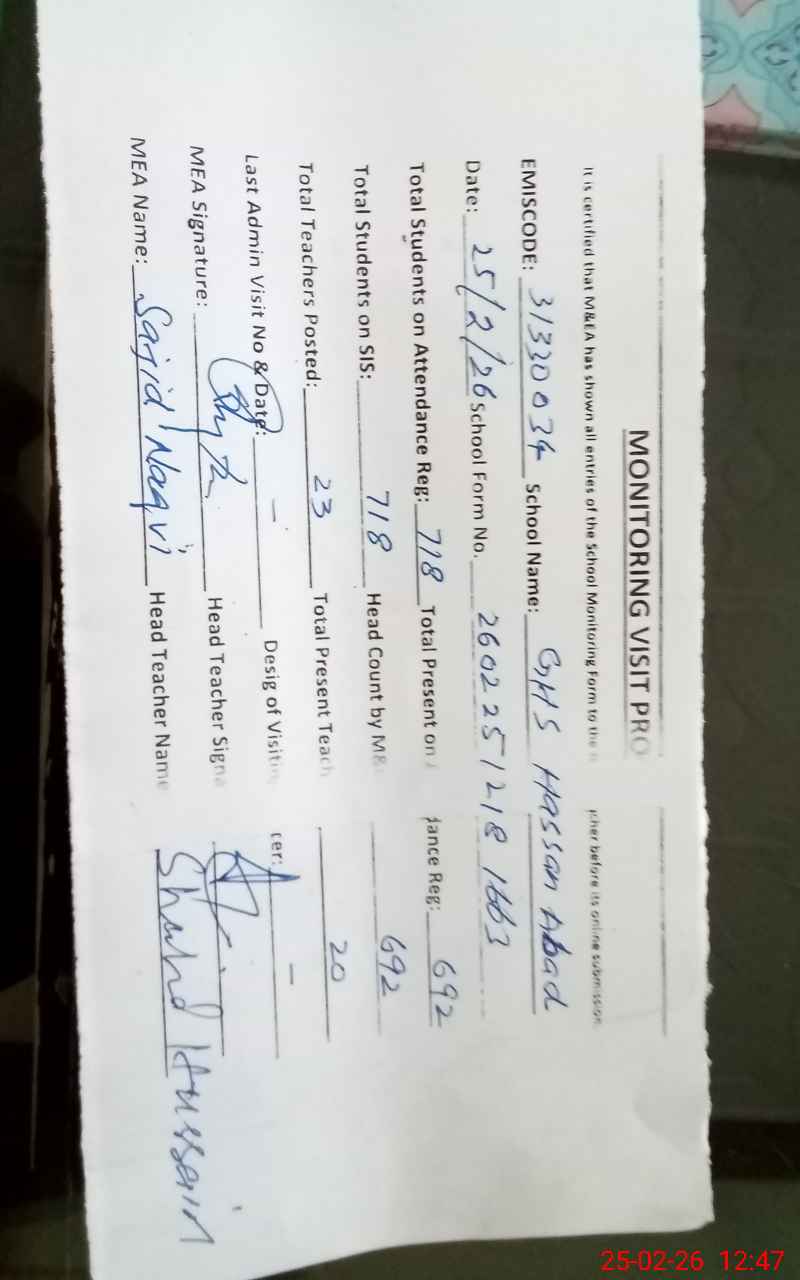 MONITORING VISIT PRO
It is certified that M&EA has shown all entries of the School Monitoring Form to the cher before its online submission
EMISCODE: 31320034 School Name: GHS Hassan Abad
Date: 25/2/26 School Form No. 2602251218 1663
Total Students on Attendance Reg: 718 Total Present on dance Reg: 692
Total Students on SIS: 718 Head Count by M& 692
Total Teachers Posted: 23 Total Present Teach 20
Last Admin Visit No & Date: – Desig of Visitin cer: –
MEA Signature: Head Teacher Signa
MEA Name: Sajid Naqvi Head Teacher Name Shahid Hussain
25-02-26 12:47